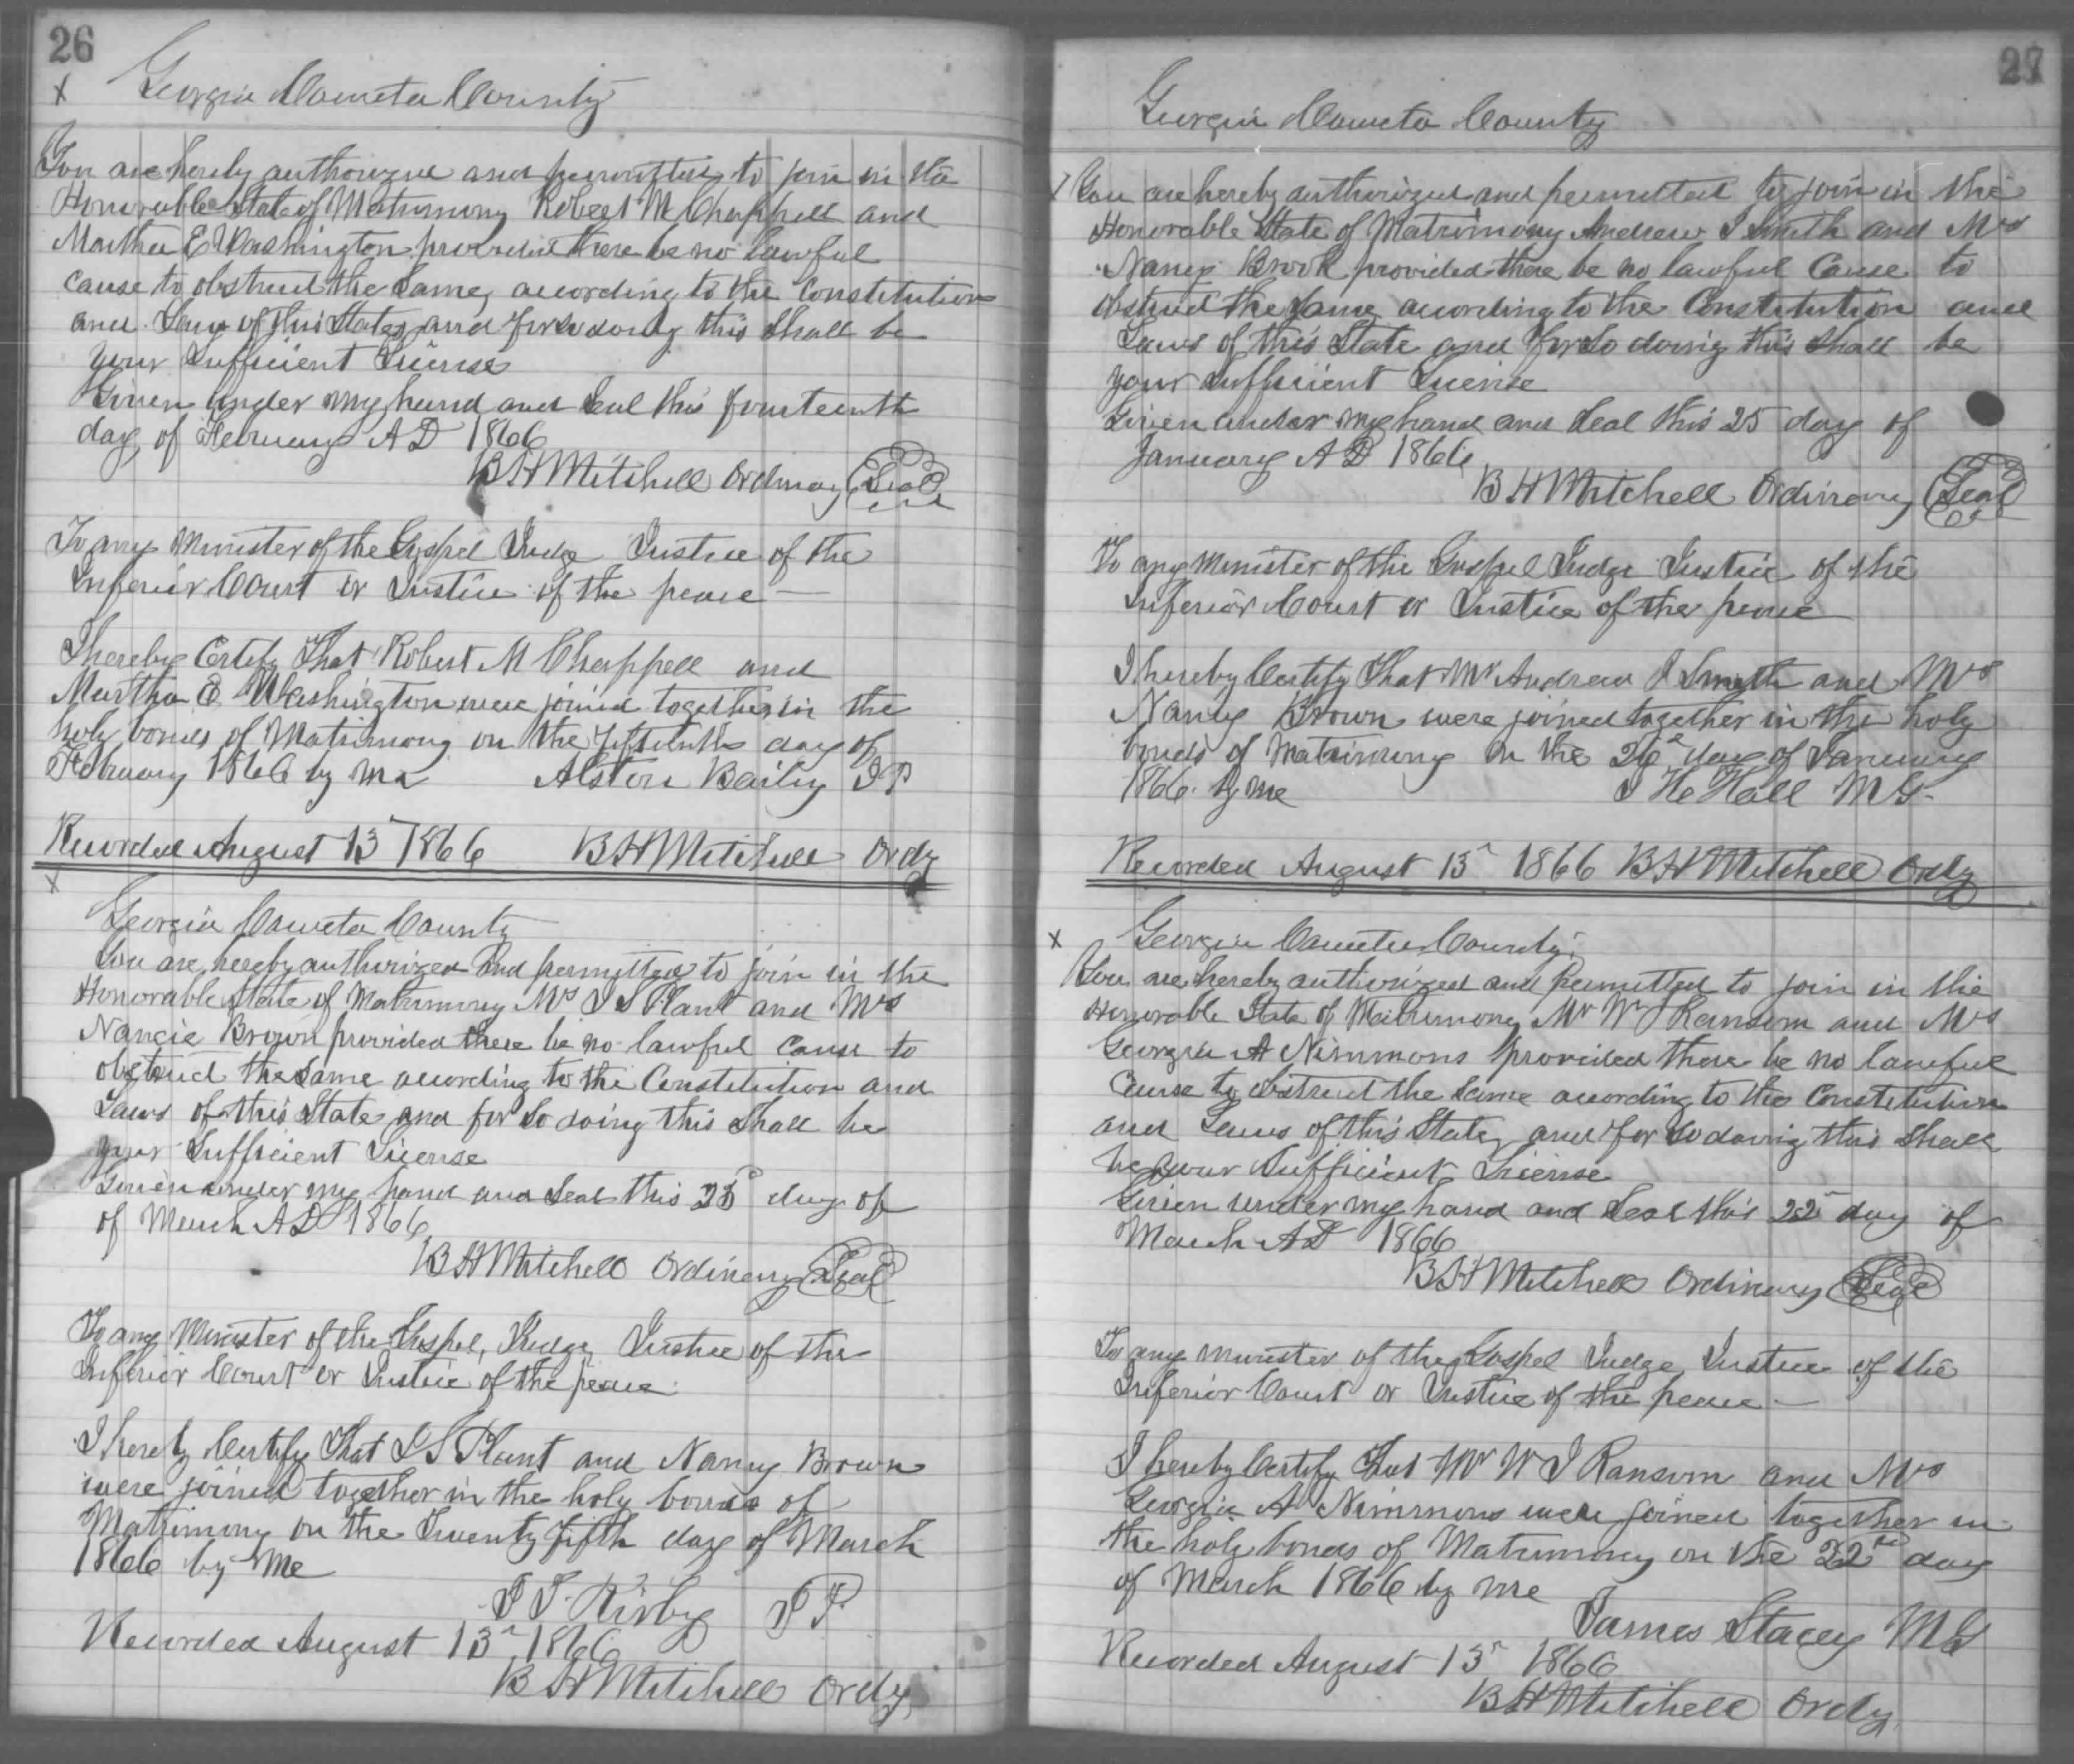 26
X Georgia Coweta County
You are hereby authorized and permitted to join in the
Honorable State of Matrimony Robert M Chappell and
Martha E Washington provided there be no lawful
cause to obstruct the Same, according to the Constitution
and Laws of this State, and for so doing this Shall be
your Sufficient License
Given under my hand and Seal this fourteenth
day of February AD 1866
B H Mitchell Ordinary Seal
To any Minister of the Gospel Judge Justice of the
Inferior Court or Justice of the peace —
I hereby Certify That Robert M Chappell and
Martha E Washington were joined together in the
holy bonds of Matrimony on the fifteenth day of
February 1866 by me Alston Baily JP
Recorded August 13 1866 B H Mitchell Ordy
X
Georgia Coweta County
You are hereby authorized and permitted to join in the
Honorable State of Matrimony Mr J S Plant and Mrs
Nancie Brown provided there be no lawful cause to
obstruct the Same according to the Constitution and
Laws of this State and for So doing this Shall be
your Sufficient License
Given under my hand and Seal this 25 day of
of March AD 1866
B H Mitchell Ordinary Seal
To any Minister of the Gospel, Judge, Justice of the
Inferior Court or Justice of the peace
I hereby Certify That J S Plant and Nancy Brown
were joined together in the holy bonds of
Matrimony on the Twenty fifth day of March
1866 by Me
J T Kirby JP
Recorded August 13 1866
B H Mitchell Ordy
27
Georgia Coweta County
You are hereby authorized and permitted to join in the
Honorable State of Matrimony Andrew J Smith and Mrs
Nancy Brook provided there be no lawful Cause to
obstruct the Same according to the Constitution and
Laws of this State and for So doing this Shall be
your Sufficient License
Given under my hand and Seal this 25 day of
January AD 1866
B H Mitchell Ordinary Seal
To any Minister of the Gospel Judge Justice of the
Inferior Court or Justice of the peace
I hereby Certify That Mr Andrew J Smith and Mrs
Nancy Brown were joined together in the holy
bonds of Matrimony on the 26 day of January
1866 by me J H Hall MG
Recorded August 13 1866 B H Mitchell Ordy
X Georgia Coweta County
You are hereby authorized and permitted to join in the
Honorable State of Matrimony Mr W J Ransom and Mrs
Georgia A Nimmons provided there be no lawful
Cause to obstruct the Same according to the Constitution
and Laws of this State, and for So doing this Shall
be your Sufficient License
Given under my hand and Seal this 22 day of
March AD 1866
B H Mitchell Ordinary Seal
To any minister of the Gospel Judge Justice of the
Inferior Court or Justice of the peace —
I hereby Certify That Mr W J Ransom and Mrs
Georgia A Nimmons were joined together in
the holy bonds of Matrimony on the 22nd day
of March 1866 by me
James Stacey MG
Recorded August 13 1866
B H Mitchell Ordy